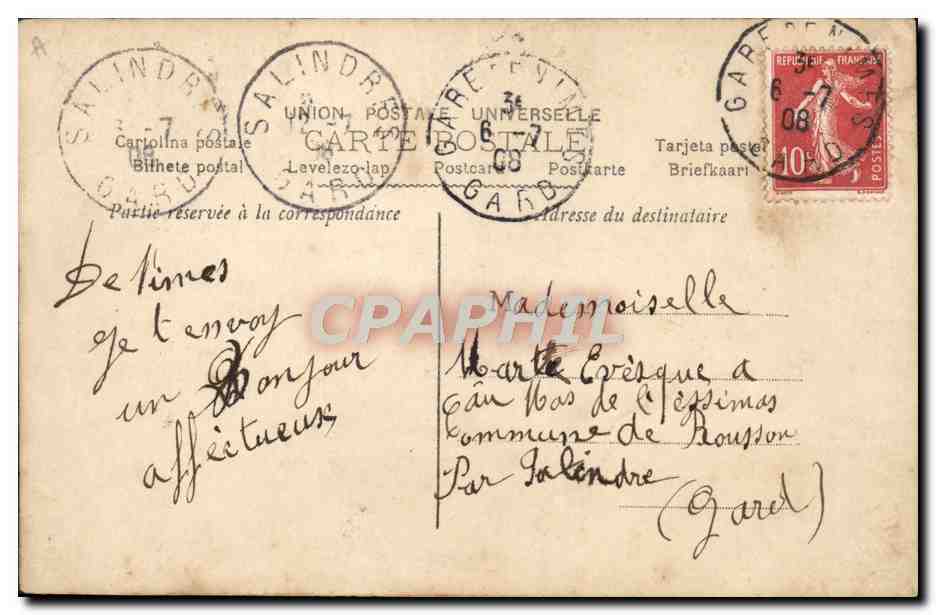 A
SALINDRES
GARD
SALINDRES
GARD
3e
6 -7
08
GARD
GARE DE NIMES
3
6 -7
08
GARD
REPUBLIQUE FRANÇAISE
10c
POSTES
UNION POSTALE UNIVERSELLE
CARTE POSTALE
Cartolina postale
Tarjeta postal
Bilhete postal Levelezo-lap Postcard Postkarte Briefkaart
Partie réservée à la correspondance
Adresse du destinataire
De Nimes
je t envoy
un Bonjour
affectueux
Mademoiselle
Marte Evèsque a
au Mas de
Commune de Rousson
Par Salindre
(Gard)
CPAPHIL